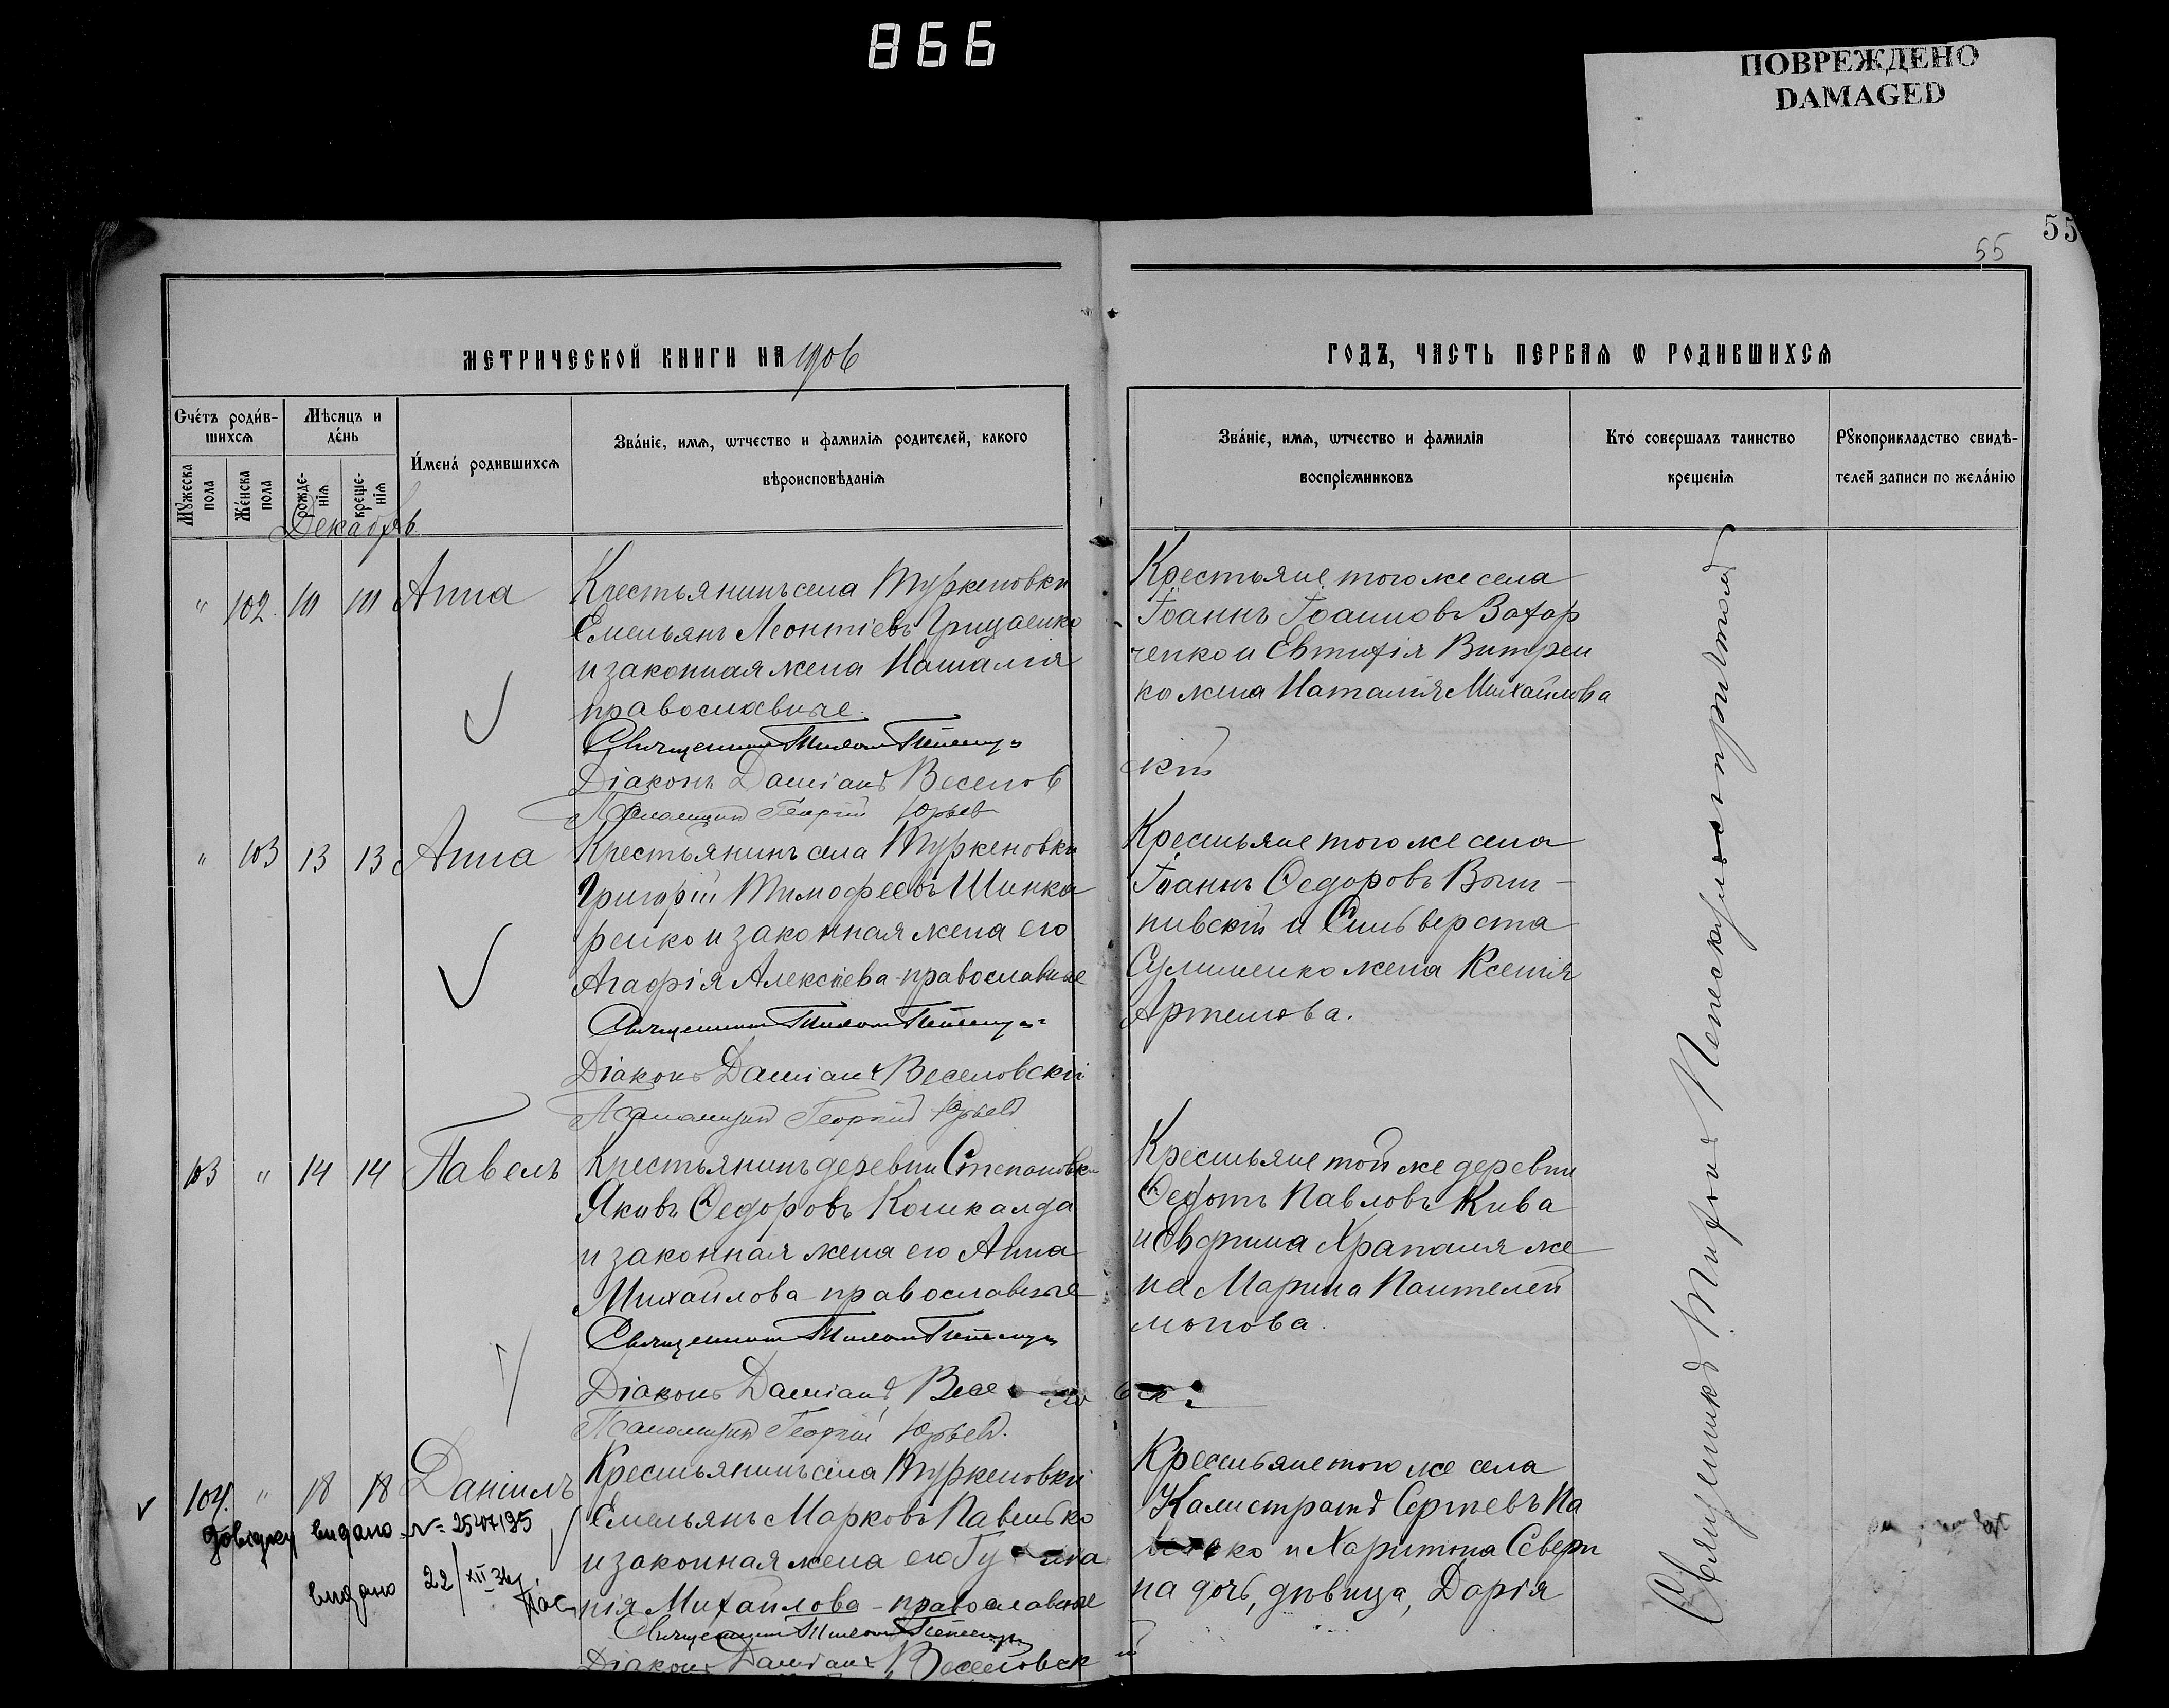 866
ПОВРЕЖДЕНО
DAMAGED
55
55
МЕТРИЧЕСКОЙ КНИГИ НА 1906
ГОДЪ, ЧАСТЬ ПЕРВАЯ Ѡ РОДИВШИХСЯ
Сче́тъ роди́в-
шихсѧ
Мѣсяцъ и
де́нь
И́мена́ родившихсѧ
Зва́ніе, имѧ, ѿтчество и фамиліѧ родителей, какого
вѣроисповѣданіѧ
Мꙋжеска
пола
Же́нска
пола
рожде-
ніѧ
креще-
ніѧ
Зва́ніе, имѧ, ѿтчество и фамиліѧ
воспріемниковъ
Кто́ совершалъ таинство
крещеніѧ
Рꙋкоприкладство свидѣ-
телей записи по жела́нію
Декабрь
" 102. 10 10 Анна
Крестьянинъ села Туркеновки
Емельянъ Леонтіевъ Грицаенко
и законная жена Наталія
православные.
Священникъ Тихонъ
Діаконъ Даміанъ Веселовскій
Псаломщикъ Георгій Юрьевъ
Крестьяне того же села
Іоаннъ Іоанновъ Захар
ченко и Евтихія Витрен
ко жена Наталія Михайлова
" 103 13 13 Анна
Крестьянинъ села Туркеновки
Григорій Тимофеевъ Шинка
ренко и законная жена его
Агафія Алексіева - православные
Священникъ Тихонъ
Діаконъ Даміанъ Веселовскій
Псаломщикъ Георгій Юрьевъ
Крестьяне того же села
Іоаннъ Ѳедоровъ
нивскій и Сильверста
жена Ксенія
Артемова.
103 " 14 14 Павелъ
Крестьянинъ деревни Степановки
Яковъ Ѳедоровъ Кошкалда
и законная жена его Анна
Михайлова - православные
Священникъ Тихонъ
Діаконъ Даміанъ Веселовскій
Псаломщикъ Георгій Юрьевъ.
Крестьяне той же деревни
Ѳедотъ Павловъ Кива
и Евфима Храпаля же
на Марина Пантелей
монова.
104. " 18 18 Даніилъ
Крестьянинъ села Туркеновки
Емельянъ Марковъ Павленко
и законная жена его
нія Михайлова - православные
Священникъ Тихонъ
Діаконъ Даміанъ Веселовскій
Крестьяне того же села
Калистратъ Сергіевъ Па
вленко и Харитона Севери
на дочь, дѣвица, Дарія
довідку видано № 2547195
видано 22/XII
Священникъ Тихонъ